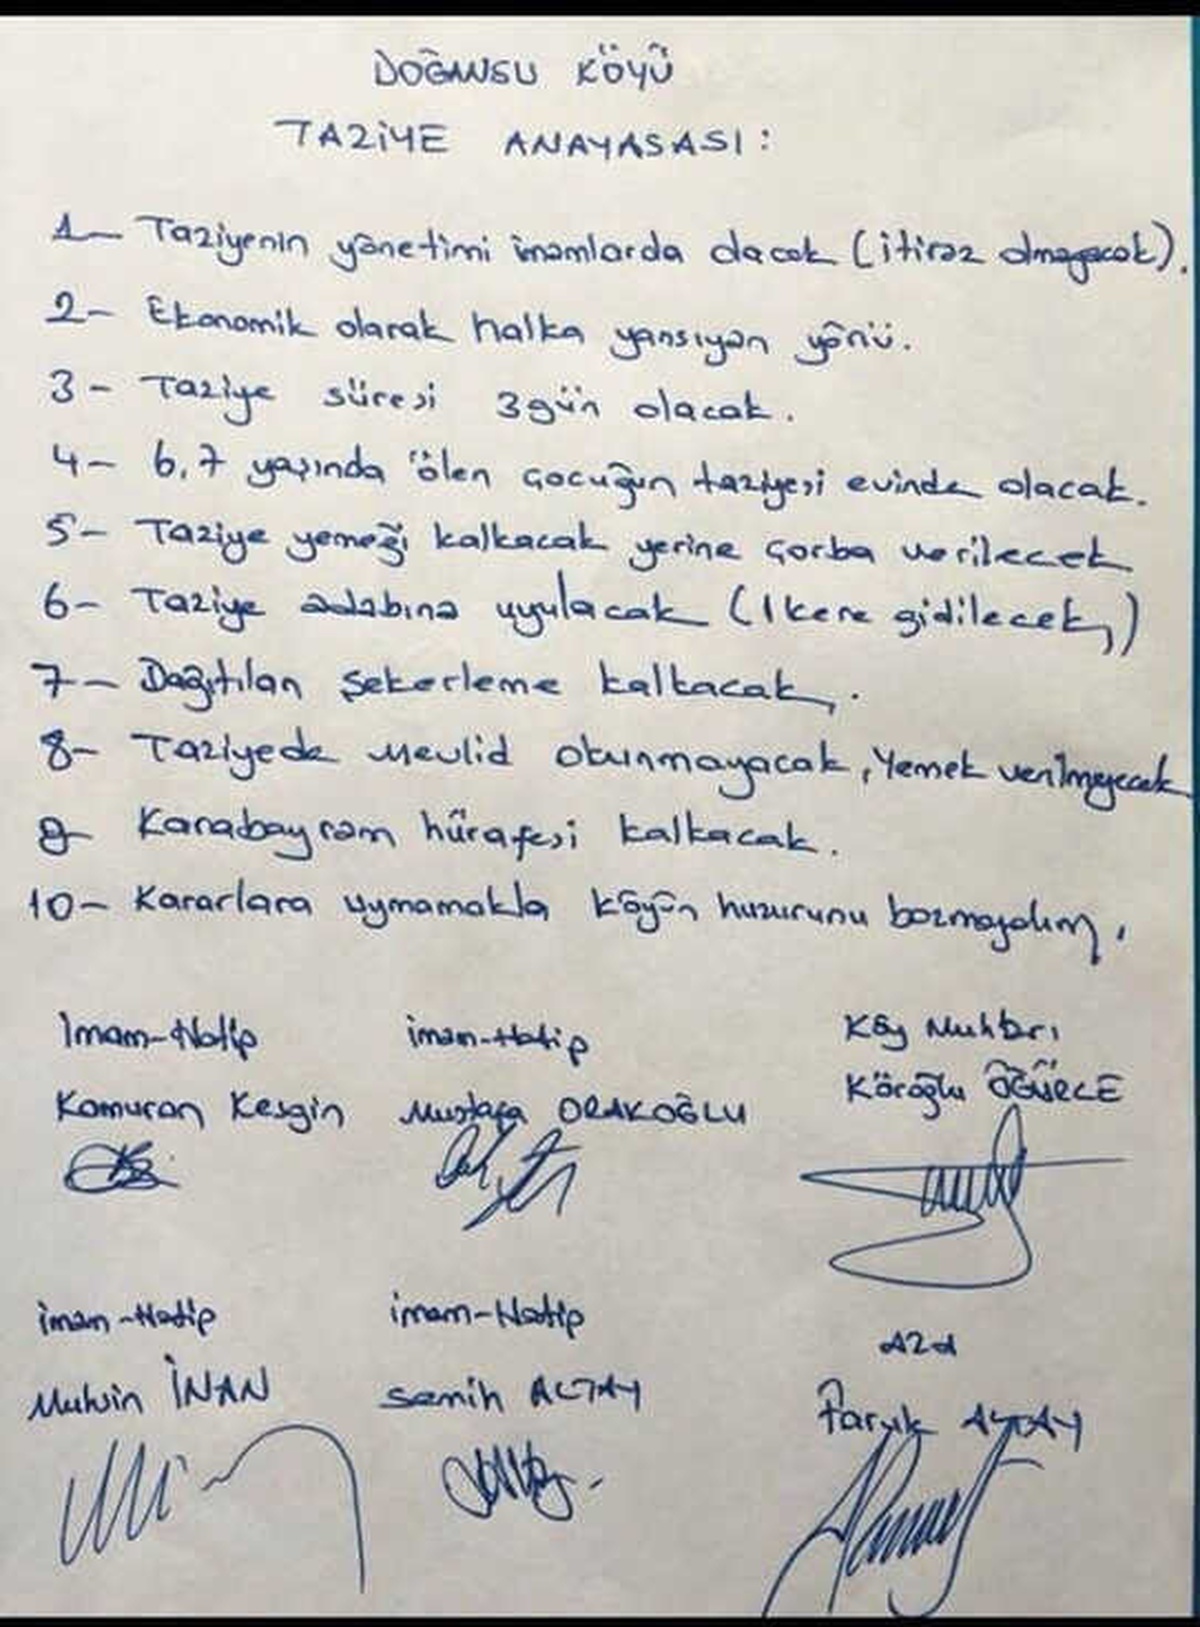 DOĞANSU KÖYÜ
TAZİYE ANAYASASI:
1- Taziyenin yönetimi imamlarda olacak (itiraz olmayacak).
2- Ekonomik olarak halka yansıyan yönü.
3- Taziye süresi 3 gün olacak.
4- 6,7 yaşında ölen çocuğun taziyesi evinde olacak.
5- Taziye yemeği kalkacak yerine çorba verilecek
6- Taziye adabına uyulacak (1 kere gidilecek)
7- Dağıtılan şekerleme kalkacak.
8- Taziyede Mevlid okunmayacak, Yemek verilmeyecek
9- Karabayram hürafesi kalkacak.
10- Kararlara uymamakla köyün huzurunu bozmayalım.
İmam-Hatip imam-Hatip Köy Muhtarı
Kamuran Kesgin Mustafa ORAKOĞLU Köroğlu ÖĞÜRCE
imam-Hatip imam-Hatip Aza
Muhsin İNAN Semih ALTAY Faruk AYTAY